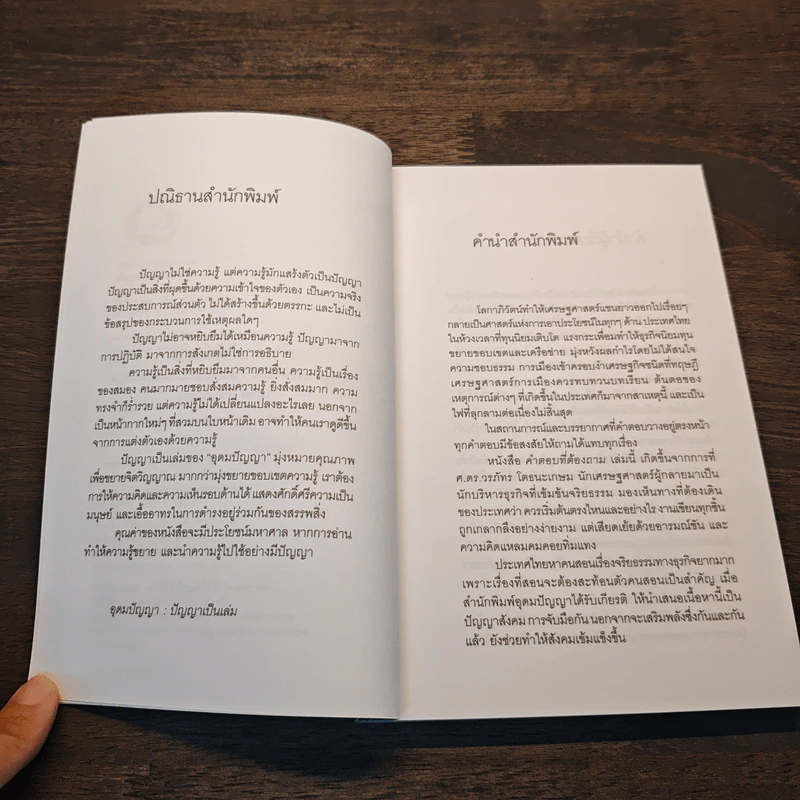 ปณิธานสำนักพิมพ์
ปัญญาไม่ใช่ความรู้ แต่ความรู้มักแสร้งตัวเป็นปัญญา
ปัญญาเป็นสิ่งที่ผุดขึ้นด้วยความเข้าใจของตัวเอง เป็นความจริง
ของประสบการณ์ส่วนตัว ไม่ได้สร้างขึ้นด้วยตรรกะ และไม่เป็น
ข้อสรุปของกระบวนการใช้เหตุผลใดๆ
ปัญญาไม่อาจหยิบยืมได้เหมือนความรู้ ปัญญามาจาก
การปฏิบัติ มาจากการสังเกตไม่ใช่การอธิบาย
ความรู้เป็นสิ่งที่หยิบยืมมาจากคนอื่น ความรู้เป็นเรื่อง
ของสมอง คนมากมายชอบสั่งสมความรู้ ยิ่งสั่งสมมาก ความ
ทรงจำก็ร่ำรวย แต่ความรู้ไม่ได้เปลี่ยนแปลงอะไรเลย นอกจาก
เป็นหน้ากากใหม่ๆ ที่สวมบนใบหน้าเดิม อาจทำให้คนเราดูดีขึ้น
จากการแต่งตัวเองด้วยความรู้
ปัญญาเป็นเล่มของ “อุดมปัญญา” มุ่งหมายคุณภาพ
เพื่อขยายจิตวิญญาณ มากกว่ามุ่งขยายขอบเขตความรู้ เราต้อง
การให้ความคิดและความเห็นรอบด้านได้ แสดงศักดิ์ศรีความเป็น
มนุษย์ และเอื้ออาทรในการดำรงอยู่ร่วมกันของสรรพสิ่ง
คุณค่าของหนังสือจะมีประโยชน์มหาศาล หากการอ่าน
ทำให้ความรู้ขยาย และนำความรู้ไปใช้อย่างมีปัญญา
อุดมปัญญา : ปัญญาเป็นเล่ม
คำนำสำนักพิมพ์
โลกาภิวัตน์ทำให้เศรษฐศาสตร์แขนยาวออกไปเรื่อยๆ
กลายเป็นศาสตร์แห่งการเอาประโยชน์ในทุกๆ ด้าน ประเทศไทย
ในห้วงเวลาที่ทุนนิยมเติบโต แรงกระเพื่อมทำให้ธุรกิจนิยมทุน
ขยายขอบเขตและเครือข่าย มุ่งหวังผลกำไรโดยไม่ได้สนใจ
ความชอบธรรม การเมืองเข้าครอบงำเศรษฐกิจชนิดที่ทฤษฎี
เศรษฐศาสตร์การเมืองควรทบทวนบทเรียน ต้นตอของ
เหตุการณ์ต่างๆ ที่เกิดขึ้นในประเทศก็มาจากสาเหตุนี้ และเป็น
ไฟที่ลุกลามต่อเนื่องไม่สิ้นสุด
ในสถานการณ์และบรรยากาศที่คำตอบวางอยู่ตรงหน้า
ทุกคำตอบมีข้อสงสัยให้ถามได้แทบทุกเรื่อง
หนังสือ คำตอบที่ต้องถาม เล่มนี้ เกิดขึ้นจากการที่
ศ.ดร.วรภัทร โตธนะเกษม นักเศรษฐศาสตร์ผู้กลายมาเป็น
นักบริหารธุรกิจที่เข้มข้นจริยธรรม มองเห็นทางที่ต้องเดิน
ของประเทศว่า ควรเริ่มต้นตรงไหนและอย่างไร งานเขียนทุกชิ้น
ถูกเกลากลึงอย่างง่ายงาม แต่เสียดเย้ยด้วยอารมณ์ขัน และ
ความคิดแหลมคมคอยทิ่มแทง
ประเทศไทยหาคนสอนเรื่องจริยธรรมทางธุรกิจยากมาก
เพราะเรื่องที่สอนจะต้องสะท้อนตัวคนสอนเป็นสำคัญ เมื่อ
สำนักพิมพ์อุดมปัญญาได้รับเกียรติ ให้นำเสนอเนื้อหานี้เป็น
ปัญญาสังคม การจับมือกัน นอกจากจะเสริมพลังซึ่งกันและกัน
แล้ว ยังช่วยทำให้สังคมเข้มแข็งขึ้น